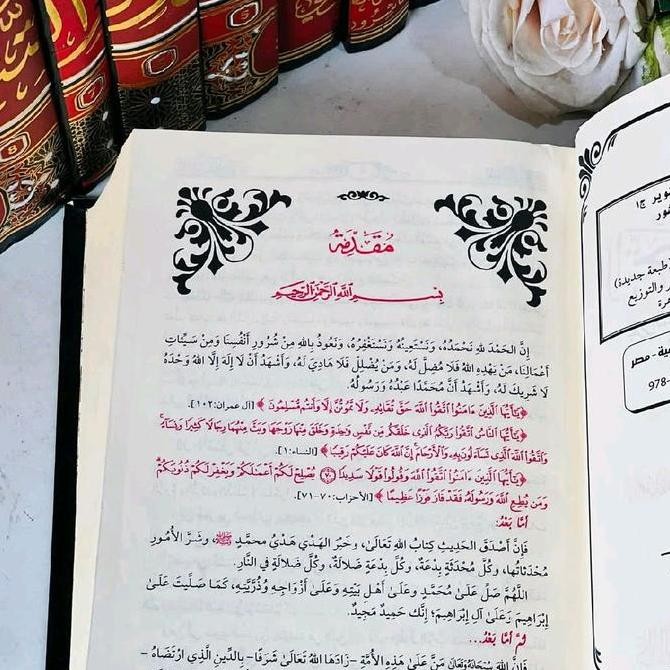 مُقَدِّمَةٌ
بِسْمِ ٱللَّهِ ٱلرَّحْمَٰنِ ٱلرَّحِيمِ
إِنَّ الْحَمْدَ لِلَّهِ نَحْمَدُهُ، وَنَسْتَعِينُهُ وَنَسْتَغْفِرُهُ، وَنَعُوذُ بِاللهِ مِنْ شُرُورِ أَنْفُسِنَا وَمِنْ سَيِّئَاتِ
أَعْمَالِنَا، مَنْ يَهْدِهِ اللهُ فَلَا مُضِلَّ لَهُ، وَمَنْ يُضْلِلْ فَلَا هَادِيَ لَهُ، وَأَشْهَدُ أَنْ لَا إِلَهَ إِلَّا اللهُ وَحْدَهُ
لَا شَرِيكَ لَهُ، وَأَشْهَدُ أَنَّ مُحَمَّدًا عَبْدُهُ وَرَسُولُهُ.
﴿يَٰٓأَيُّهَا ٱلَّذِينَ ءَامَنُوا۟ ٱتَّقُوا۟ ٱللَّهَ حَقَّ تُقَاتِهِۦ وَلَا تَمُوتُنَّ إِلَّا وَأَنتُم مُّسْلِمُونَ﴾ [آل عمران: ١٠٢].
﴿يَٰٓأَيُّهَا ٱلنَّاسُ ٱتَّقُوا۟ رَبَّكُمُ ٱلَّذِى خَلَقَكُم مِّن نَّفْسٍ وَٰحِدَةٍ وَخَلَقَ مِنْهَا زَوْجَهَا وَبَثَّ مِنْهُمَا رِجَالًا كَثِيرًا وَنِسَآءً ۚ
وَٱتَّقُوا۟ ٱللَّهَ ٱلَّذِى تَسَآءَلُونَ بِهِۦ وَٱلْأَرْحَامَ ۚ إِنَّ ٱللَّهَ كَانَ عَلَيْكُمْ رَقِيبًا﴾ [النساء: ١].
﴿يَٰٓأَيُّهَا ٱلَّذِينَ ءَامَنُوا۟ ٱتَّقُوا۟ ٱللَّهَ وَقُولُوا۟ قَوْلًا سَدِيدًا ۝٧٠ يُصْلِحْ لَكُمْ أَعْمَٰلَكُمْ وَيَغْفِرْ لَكُمْ ذُنُوبَكُمْ ۗ
وَمَن يُطِعِ ٱللَّهَ وَرَسُولَهُۥ فَقَدْ فَازَ فَوْزًا عَظِيمًا﴾ [الأحزاب: ٧٠-٧١].
أَمَّا بَعْدُ:
فَإِنَّ أَصْدَقَ الْحَدِيثِ كِتَابُ اللهِ تَعَالَى، وَخَيْرَ الْهَدْيِ هَدْيُ مُحَمَّدٍ ﷺ، وَشَرَّ الْأُمُورِ
مُحْدَثَاتُهَا، وَكُلَّ مُحْدَثَةٍ بِدْعَةٌ، وَكُلَّ بِدْعَةٍ ضَلَالَةٌ، وَكُلَّ ضَلَالَةٍ فِي النَّارِ.
اللَّهُمَّ صَلِّ عَلَىٰ مُحَمَّدٍ وَعَلَىٰ أَهْلِ بَيْتِهِ وَعَلَىٰ أَزْوَاجِهِ وَذُرِّيَّتِهِ، كَمَا صَلَّيْتَ عَلَىٰ
إِبْرَاهِيمَ وَعَلَىٰ آلِ إِبْرَاهِيمَ؛ إِنَّكَ حَمِيدٌ مَجِيدٌ.
ثُمَّ أَمَّا بَعْدُ...
فَإِنَّ اللهَ سُبْحَانَهُ وَتَعَالَىٰ مَنَّ عَلَىٰ هَذِهِ الْأُمَّةِ - زَادَهَا اللهُ تَعَالَىٰ شَرَفًا - بِالدِّينِ الَّذِي ارْتَضَاهُ
وير ج١
(طبعة جديدة)
ر والتوزيع
ية - مصر
978-